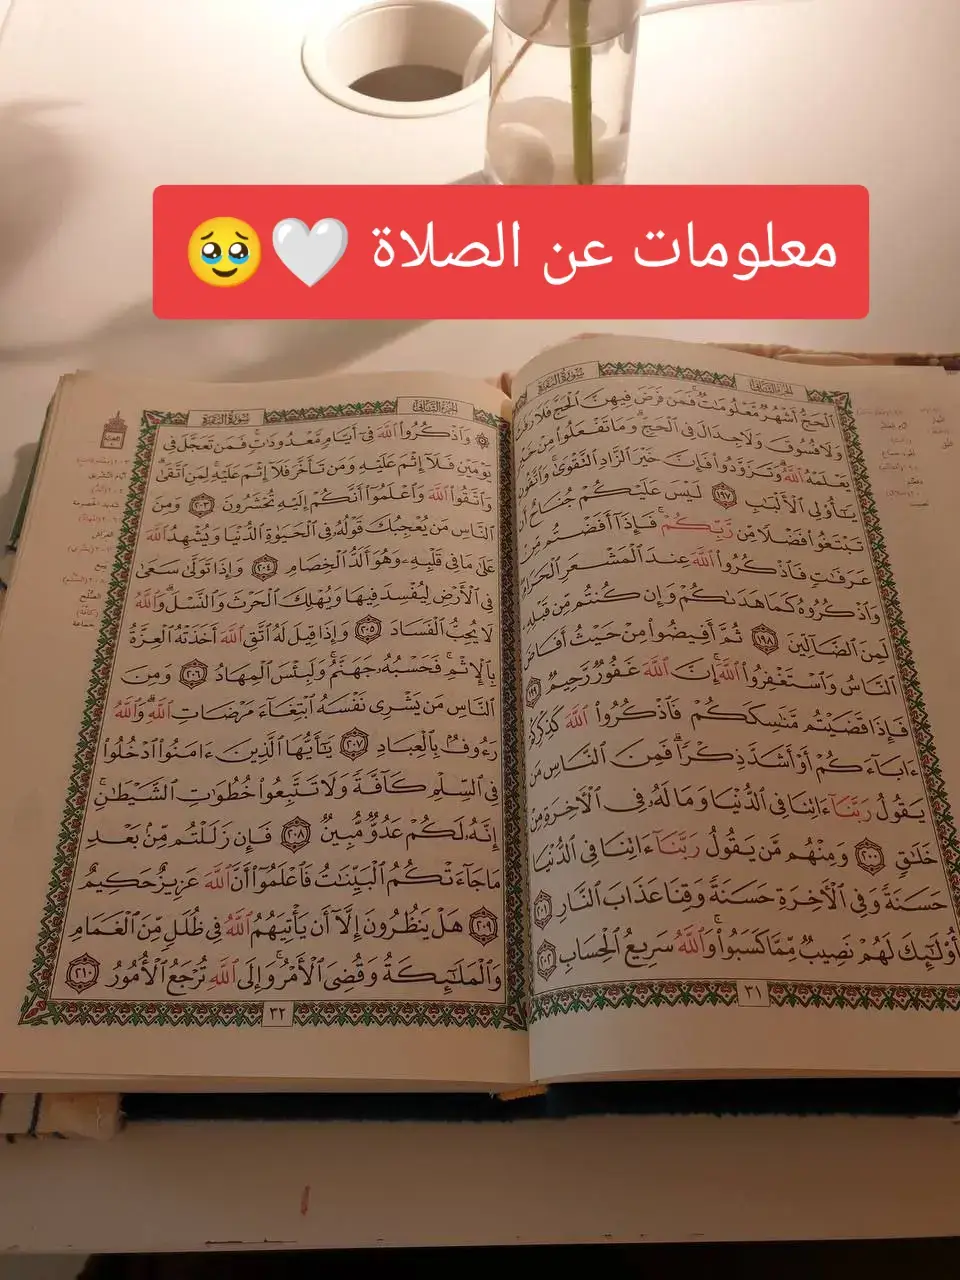 معلومات عن الصلاة 🤍🥹
سورة البقرة
الجزء الثاني
ٱلۡحَجُّ أَشۡهُرٞ مَّعۡلُومَٰتٞۚ فَمَن فَرَضَ فِيهِنَّ ٱلۡحَجَّ فَلَا رَفَثَ
وَلَا فُسُوقَ وَلَا جِدَالَ فِي ٱلۡحَجِّۗ وَمَا تَفۡعَلُواْ مِنۡ خَيۡرٖ
يَعۡلَمۡهُ ٱللَّهُۗ وَتَزَوَّدُواْ فَإِنَّ خَيۡرَ ٱلزَّادِ ٱلتَّقۡوَىٰۖ وَٱتَّقُونِ
يَٰٓأُوْلِي ٱلۡأَلۡبَٰبِ ١٩٧ لَيۡسَ عَلَيۡكُمۡ جُنَاحٌ أَن
تَبۡتَغُواْ فَضۡلٗا مِّن رَّبِّكُمۡۚ فَإِذَآ أَفَضۡتُم مِّنۡ
عَرَفَٰتٖ فَٱذۡكُرُواْ ٱللَّهَ عِندَ ٱلۡمَشۡعَرِ ٱلۡحَرَامِۖ
وَٱذۡكُرُوهُ كَمَا هَدَىٰكُمۡ وَإِن كُنتُم مِّن قَبۡلِهِۦ
لَمِنَ ٱلضَّآلِّينَ ١٩٨ ثُمَّ أَفِيضُواْ مِنۡ حَيۡثُ أَفَاضَ
ٱلنَّاسُ وَٱسۡتَغۡفِرُواْ ٱللَّهَۚ إِنَّ ٱللَّهَ غَفُورٞ رَّحِيمٞ ١٩٩
فَإِذَا قَضَيۡتُم مَّنَٰسِكَكُمۡ فَٱذۡكُرُواْ ٱللَّهَ كَذِكۡرِكُمۡ
ءَابَآءَكُمۡ أَوۡ أَشَدَّ ذِكۡرٗاۗ فَمِنَ ٱلنَّاسِ مَن
يَقُولُ رَبَّنَآ ءَاتِنَا فِي ٱلدُّنۡيَا وَمَا لَهُۥ فِي ٱلۡأٓخِرَةِ مِنۡ
خَلَٰقٖ ٢٠٠ وَمِنۡهُم مَّن يَقُولُ رَبَّنَآ ءَاتِنَا فِي ٱلدُّنۡيَا
حَسَنَةٗ وَفِي ٱلۡأٓخِرَةِ حَسَنَةٗ وَقِنَا عَذَابَ ٱلنَّارِ ٢٠١
أُوْلَٰٓئِكَ لَهُمۡ نَصِيبٞ مِّمَّا كَسَبُواْۚ وَٱللَّهُ سَرِيعُ ٱلۡحِسَابِ ٢٠٢
٣١
الجزء الثاني
سورة البقرة
۞ وَٱذۡكُرُواْ ٱللَّهَ فِيٓ أَيَّامٖ مَّعۡدُودَٰتٖۚ فَمَن تَعَجَّلَ فِي
يَوۡمَيۡنِ فَلَآ إِثۡمَ عَلَيۡهِ وَمَن تَأَخَّرَ فَلَآ إِثۡمَ عَلَيۡهِۖ لِمَنِ ٱتَّقَىٰۗ
وَٱتَّقُواْ ٱللَّهَ وَٱعۡلَمُوٓاْ أَنَّكُمۡ إِلَيۡهِ تُحۡشَرُونَ ٢٠٣ وَمِنَ
ٱلنَّاسِ مَن يُعۡجِبُكَ قَوۡلُهُۥ فِي ٱلۡحَيَوٰةِ ٱلدُّنۡيَا وَيُشۡهِدُ ٱللَّهَ
عَلَىٰ مَا فِي قَلۡبِهِۦ وَهُوَ أَلَدُّ ٱلۡخِصَامِ ٢٠٤ وَإِذَا تَوَلَّىٰ سَعَىٰ
فِي ٱلۡأَرۡضِ لِيُفۡسِدَ فِيهَا وَيُهۡلِكَ ٱلۡحَرۡثَ وَٱلنَّسۡلَۚ وَٱللَّهُ
لَا يُحِبُّ ٱلۡفَسَادَ ٢٠٥ وَإِذَا قِيلَ لَهُ ٱتَّقِ ٱللَّهَ أَخَذَتۡهُ ٱلۡعِزَّةُ
بِٱلۡإِثۡمِۚ فَحَسۡبُهُۥ جَهَنَّمُۖ وَلَبِئۡسَ ٱلۡمِهَادُ ٢٠٦ وَمِنَ
ٱلنَّاسِ مَن يَشۡرِي نَفۡسَهُ ٱبۡتِغَآءَ مَرۡضَاتِ ٱللَّهِۚ وَٱللَّهُ
رَءُوفُۢ بِٱلۡعِبَادِ ٢٠٧ يَٰٓأَيُّهَا ٱلَّذِينَ ءَامَنُواْ ٱدۡخُلُواْ
فِي ٱلسِّلۡمِ كَآفَّةٗ وَلَا تَتَّبِعُواْ خُطُوَٰتِ ٱلشَّيۡطَٰنِۚ
إِنَّهُۥ لَكُمۡ عَدُوّٞ مُّبِينٞ ٢٠٨ فَإِن زَلَلۡتُم مِّنۢ بَعۡدِ
مَا جَآءَتۡكُمُ ٱلۡبَيِّنَٰتُ فَٱعۡلَمُوٓاْ أَنَّ ٱللَّهَ عَزِيزٌ حَكِيمٌ
٢٠٩ هَلۡ يَنظُرُونَ إِلَّآ أَن يَأۡتِيَهُمُ ٱللَّهُ فِي ظُلَلٖ مِّنَ ٱلۡغَمَامِ
وَٱلۡمَلَٰٓئِكَةُ وَقُضِيَ ٱلۡأَمۡرُۚ وَإِلَى ٱللَّهِ تُرۡجَعُ ٱلۡأُمُورُ ٢١٠
٣٢